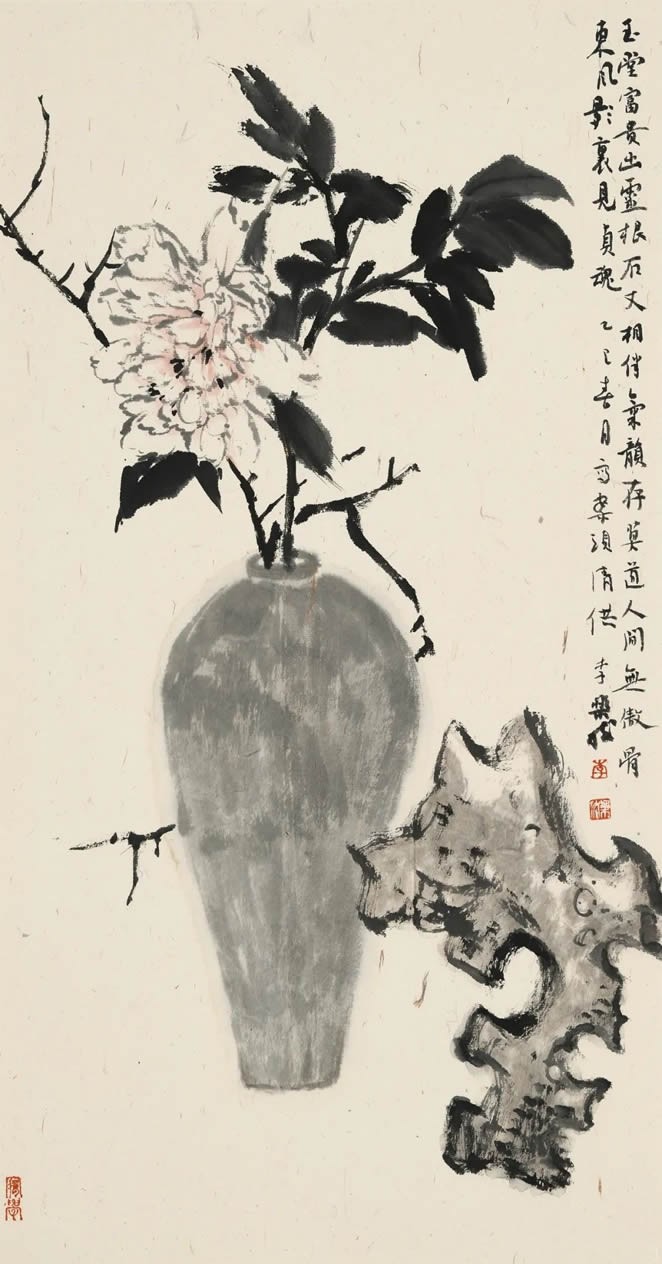 玉堂富贵出靈根石丈相伴氣韻存莫道人間無傲骨
東風影裏見貞魂 乙巳春月寫案頭清供 李
李